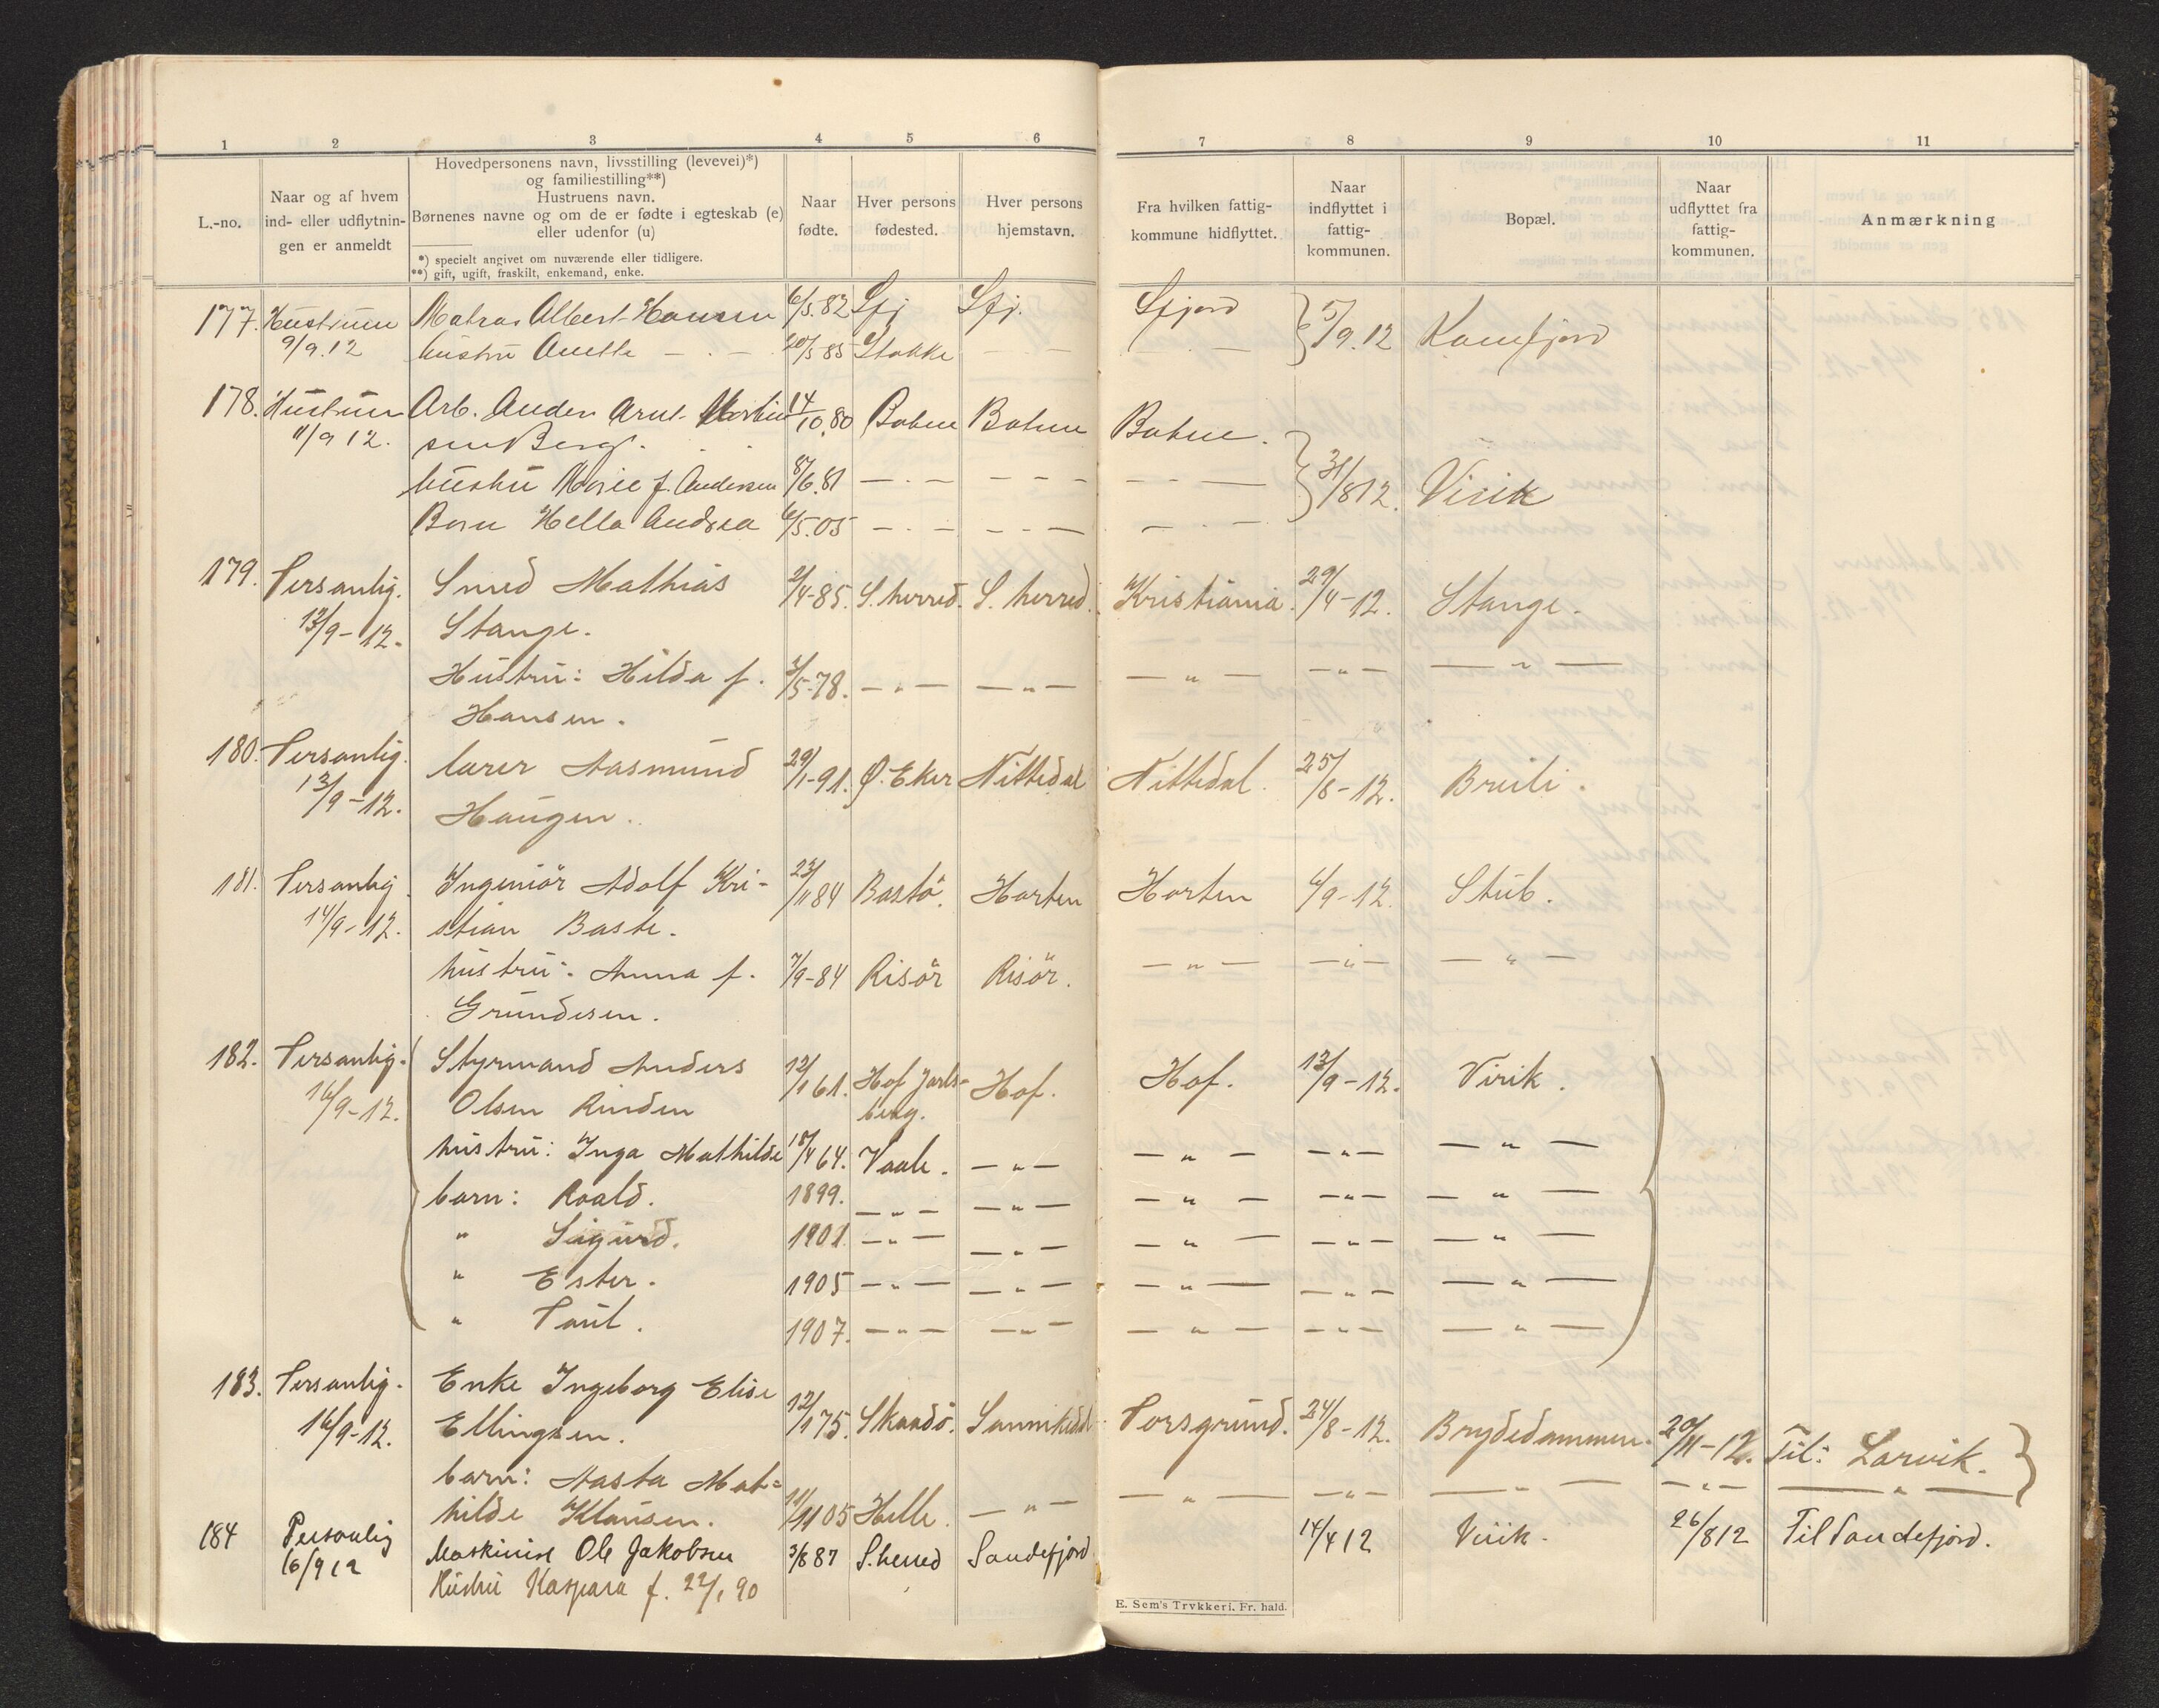 1 2 3 4 5 6 7 8 9 10 11
L.-no.
Naar og af hvem
ind- eller udflytnin-
gen er anmeldt
Hovedpersonens navn, livsstilling (levevei)*)
og familiestilling**)
Hustruens navn.
Børnenes navne og om de er fødte i egteskab (e)
eller udenfor (u)
*) specielt angivet om nuværende eller tidligere.
**) gift, ugift, fraskilt, enkemand, enke.
Naar
fødte.
Hver persons
fødested.
Hver persons
hjemstavn.
Fra hvilken fattig-
kommune hidflyttet.
Naar
indflyttet i
fattig-
kommunen.
Bopæl.
Naar
udflyttet fra
fattig-
kommunen.
Anmærkning
177. Hustruen Matros Albert Hansen 6/5.82 Sfj Sfj. Sfjord 5/9.12 Kamfjord
9/9.12 hustru Anette — . — 20/5 85 Stokke — . — — . —
178. Hustruen Arb. Anders Arnt Martin 14/10.80 Botne Botne Botne.
11/9 12. sen Berg.
hustru Marie f. Andersen 8/6.81 — . — — — — — . — 31/812. Virik
Barn Hella Andrea 6/5.05 — . — — . — — . —
179. Personlig. Smed Mathias 2/4-85. S. herred. S. herred. Kristiania. 29/4-12. Stange.
13/9-12. Stange.
Hustru: Hilda f. 3/5-78. — " — — " — — " — — " — — " —
Hansen.
180. Personlig. lærer Aasmund 29/1-91. Ø. Eker Nittedal Nittedal. 25/8-12. Breili.
13/9-12. Haugen.
181. Personlig. Ingeniör Adolf Kri- 23/11 84 Bastö. Horten Horten 6/9-12. Stub.
14/9-12. stian Baste.
hustru: Anna f. 7/9-84 Risör Risör. — " — — " — — " —
Grundesen.
182. Personlig. Styrmand Anders 12/1 61. Hof Jarls- Hof. Hof. 13/9-12. Virik.
16/9-12. Olsen Rinden berg.
hustru: Inga Mathilde 18/4 64. Vaale. — " — — " — — " — — " —
barn: Roald. 1899. — " — — " — — " — — " — — " —
" Sigurd. 1901. — " — — " — — " — — " — — " —
" Ester. 1905 — " — — " — — " — — " — — " —
" Paul. 1907. — " — — " — — " — — " — — " —
183. Personlig. Enke Ingeborg Elise
16/9-12. Ellingsen. 12/1 75. Skaadö. Sannikedal Porsgrund. 24/8-12. Brydedammen. 20/11-12. Til: Larvik.
barn: Aasta Mat=
hilde Klausen. 11/11 05 Helle. — " — — " — — " — — " — — " — — " —
184 Personlig Maskinist Ole Jakobsen 3/8 87 S. herred Sandefjord 14/4 12 Virik. 26/8 12 Til Sandefjord.
16/9 12 Hustru Kaspara f. 22/1 90
E. Sem's Trykkeri. Fr. hald.